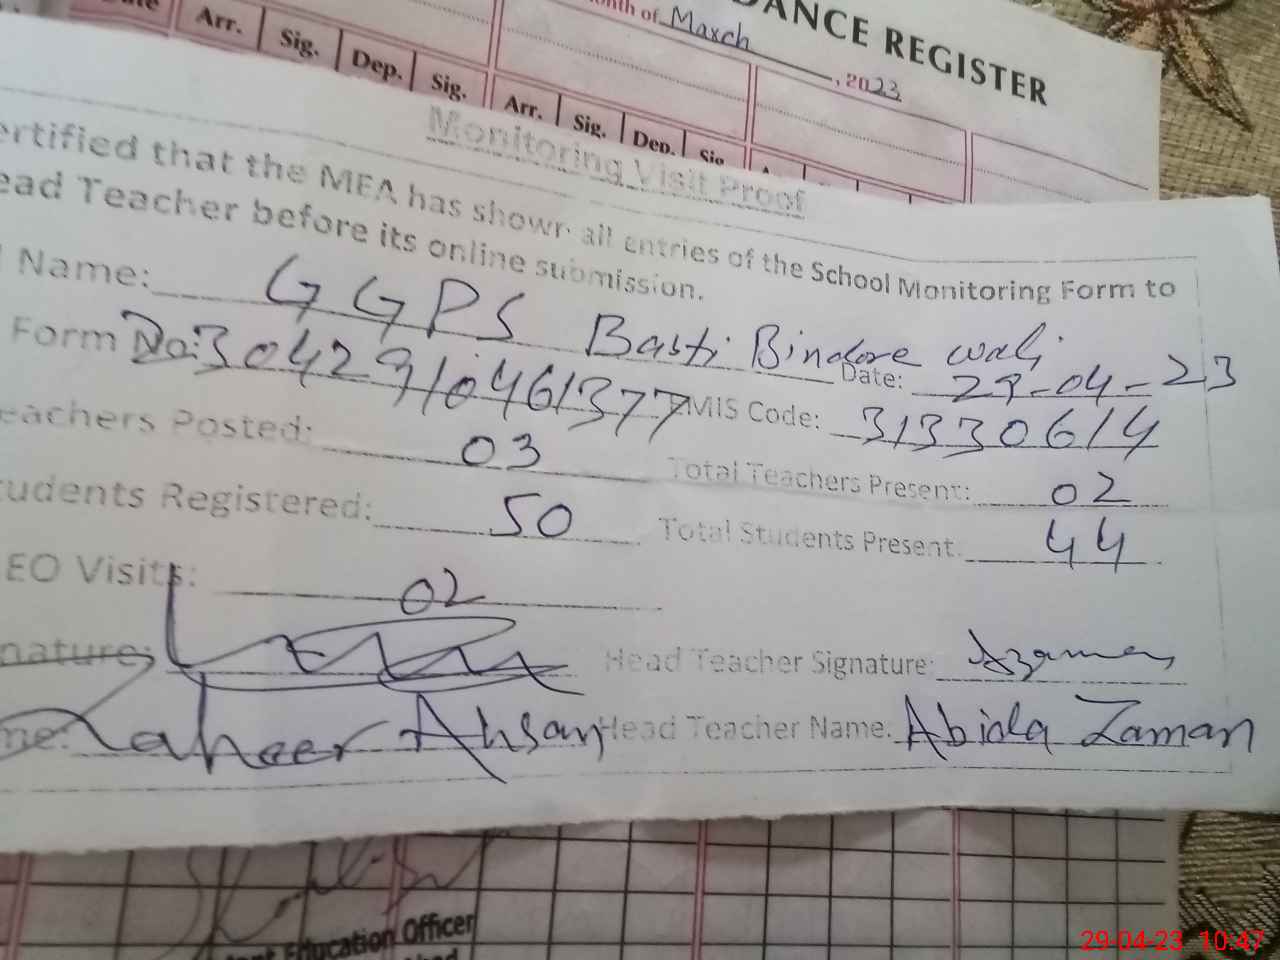 Arr. Sig. Dep. Sig. Arr. Sig. Dep. Sig
nth of March, 2023
DANCE REGISTER
Monitoring Visit Proof
ertified that the MEA has shown all entries of the School Monitoring Form to
ead Teacher before its online submission.
Name: GGPS Basti Bindore wali
Form No: 3042910461377 Date: 29-04-23
MIS Code: 31330614
eachers Posted: 03 Total Teachers Present: 02
tudents Registered: 50 Total Students Present: 44
EO Visits: 02
nature: Head Teacher Signature: Azaman
me: Zaheer Ahsan Head Teacher Name: Abida Zaman
Education Officer
29-04-23 10:47